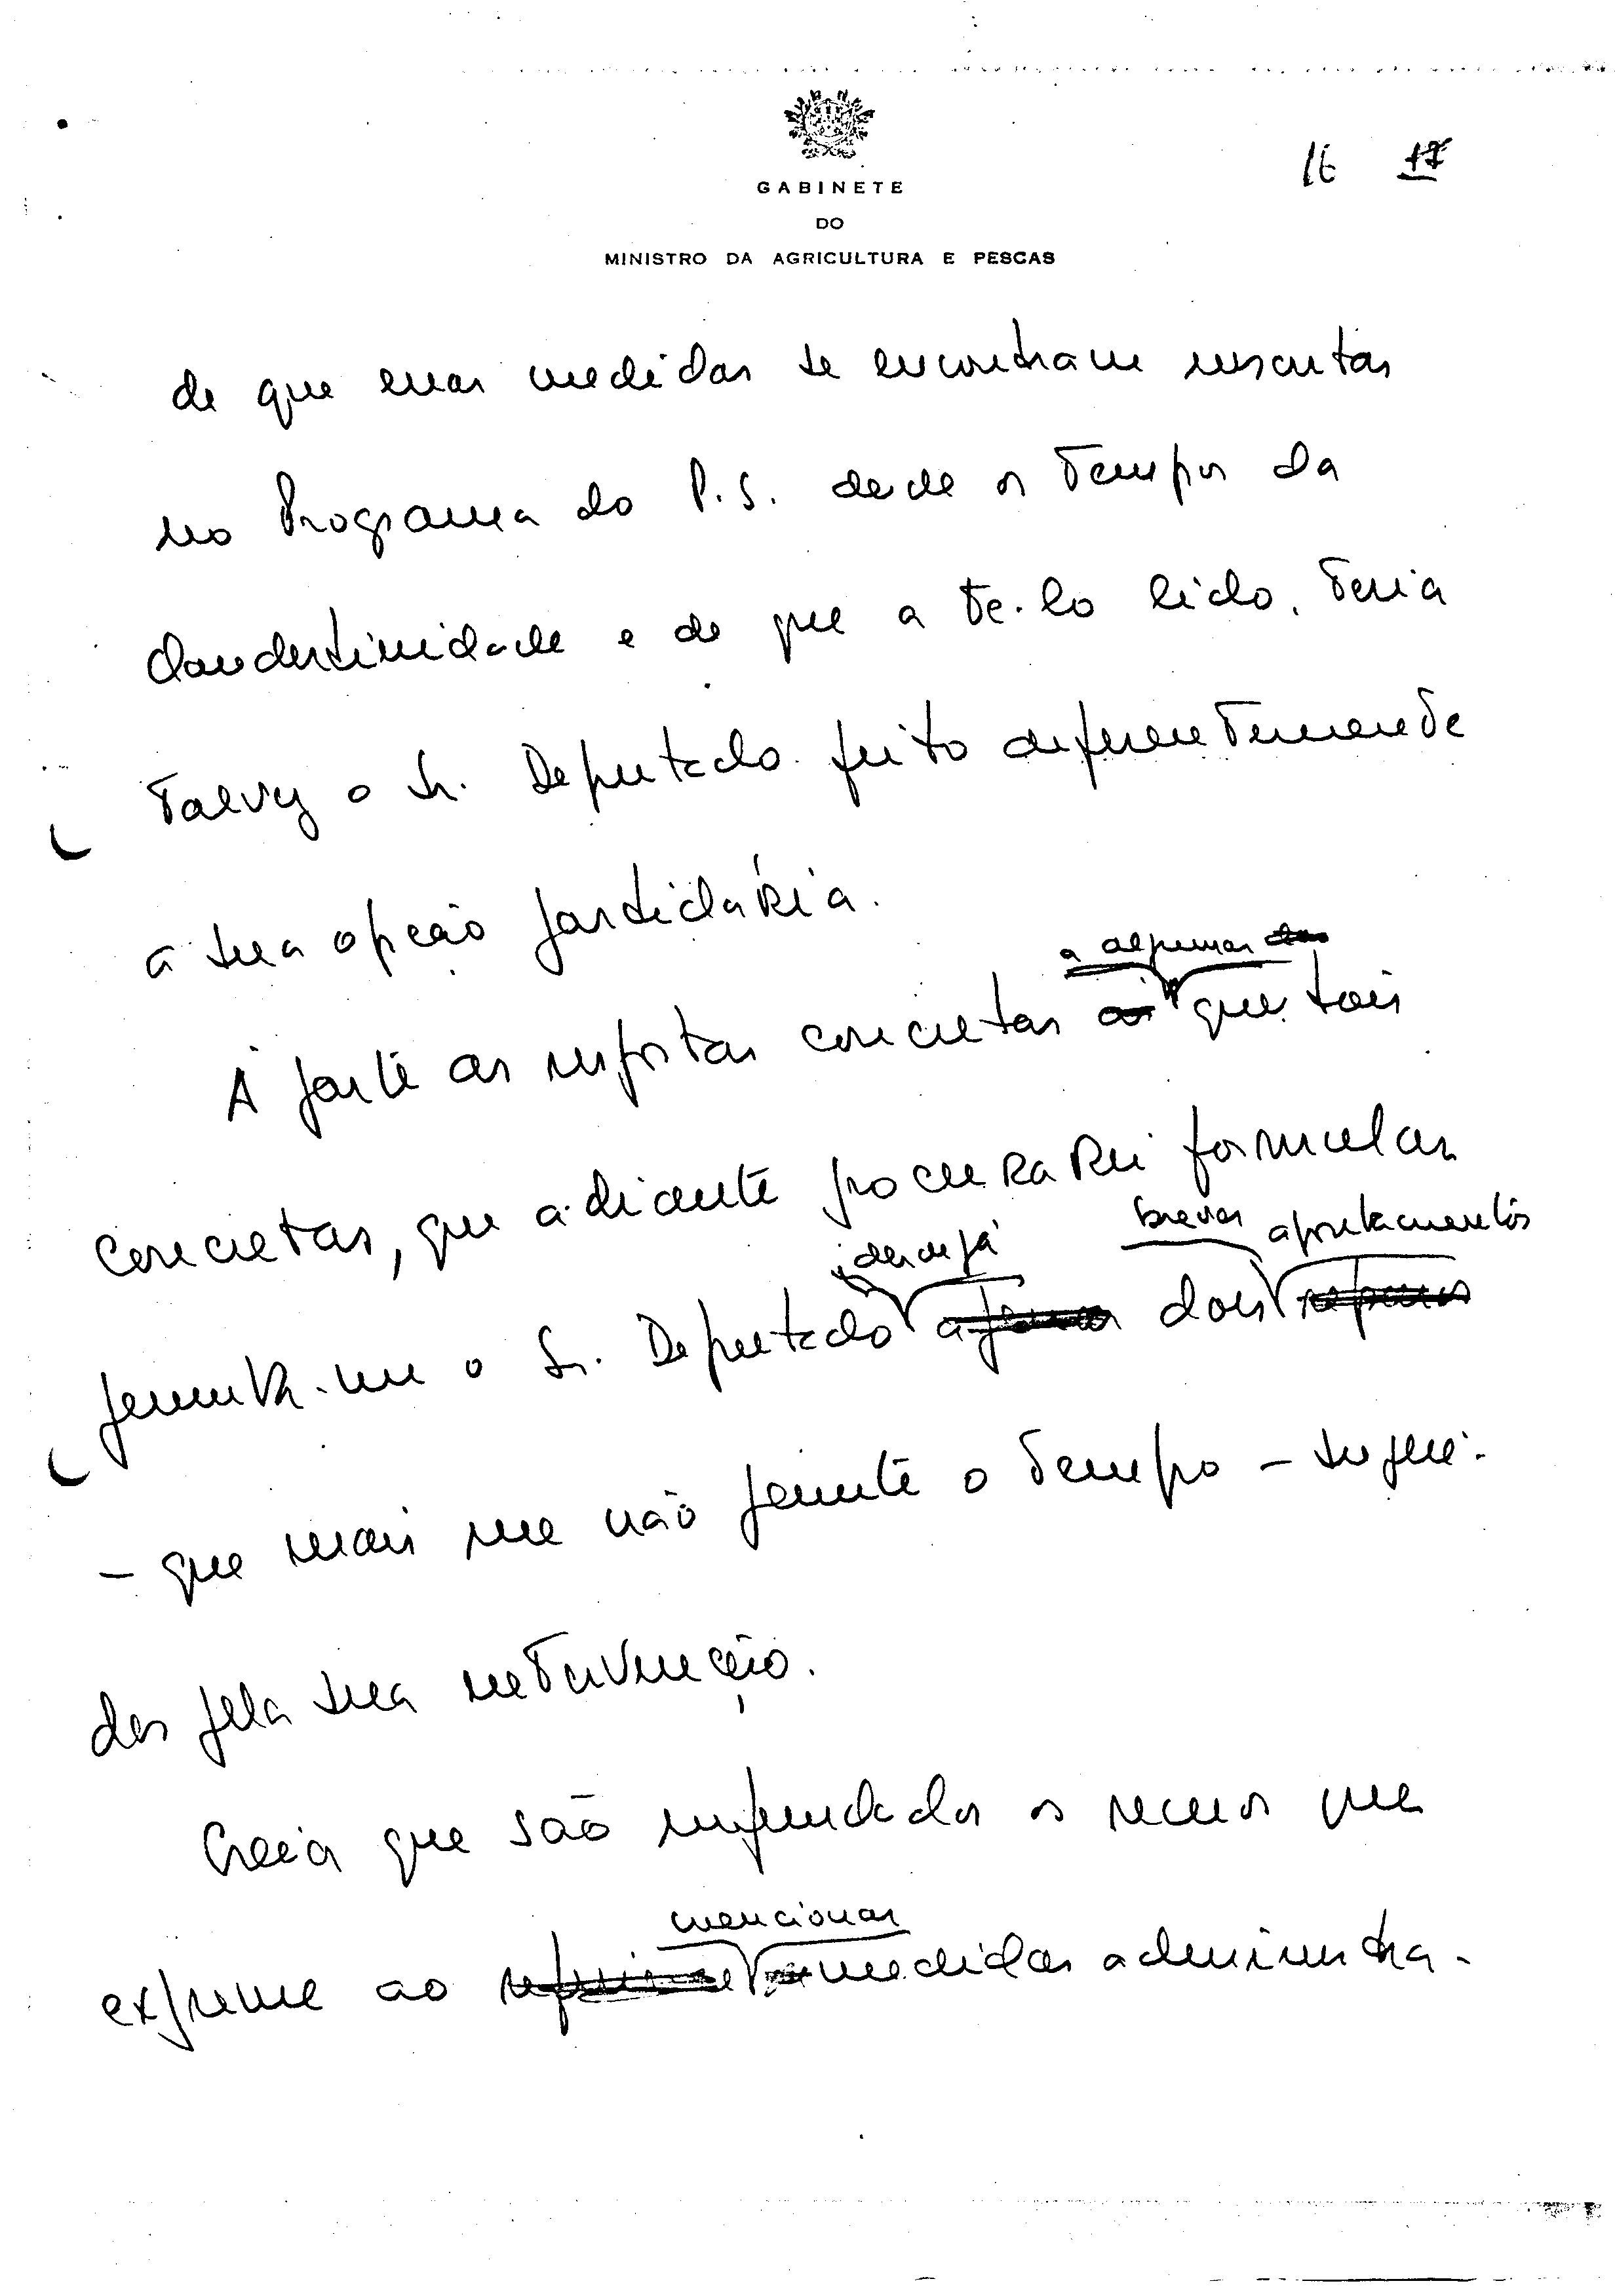 16 17
GABINETE
DO
MINISTRO DA AGRICULTURA E PESCAS
de que essas medidas se encontram inscritas
no Programa do P.S. desde os tempos da
clandestinidade e de que a te-lo lido, teria
talvez o Sr. Deputado feito diferentemente
a sua opção partidária.
a algumas das
À parte as respostas concretas as questões
concretas, que adiante procurarei formular
desde já breves apontamentos
permita-me o Sr. Deputado dois reparos
- que mais me não permite o tempo - sugeri-
dos pela sua intervenção.
Creia que são infundados os receios que
mencionar
exprime ao medidas administra-